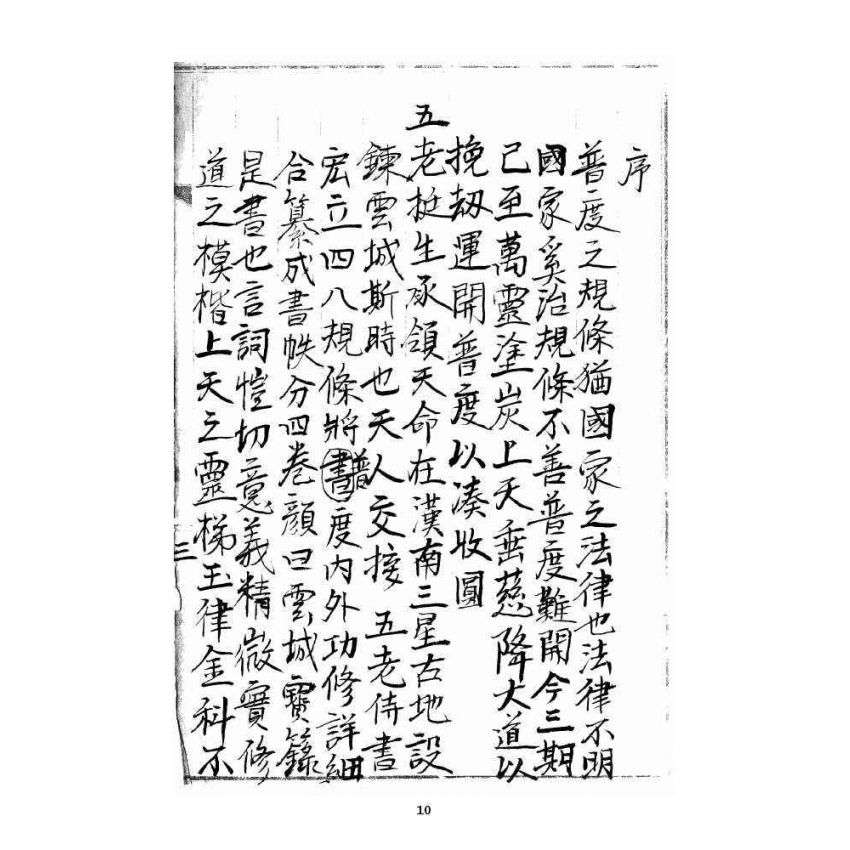 序
普度之規條猶國家之法律也法律不明
國家奚治規條不善普度難開今三期
已至萬靈塗炭上天垂慈降大道以
挽劫運開普度以湊收圓
五老挺生承領天命在漢南三星古地設
鍊雲城斯時也天人交接 五老侍書
宏立四八規條將書普度內外功修詳細
合纂成書帙分四卷顏曰雲城寶籙
是書也言詞愷切意義精微實修
道之模楷上天之靈梯玉律金科不
三
10